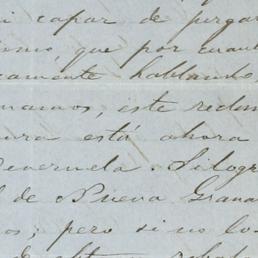 i capaz de juzgar
ismo, que por cuant
camente hablando,
manos, este redon
ura está ahora
Venezuela. Si logr
l de Nueva Grana
os; pero si no lo